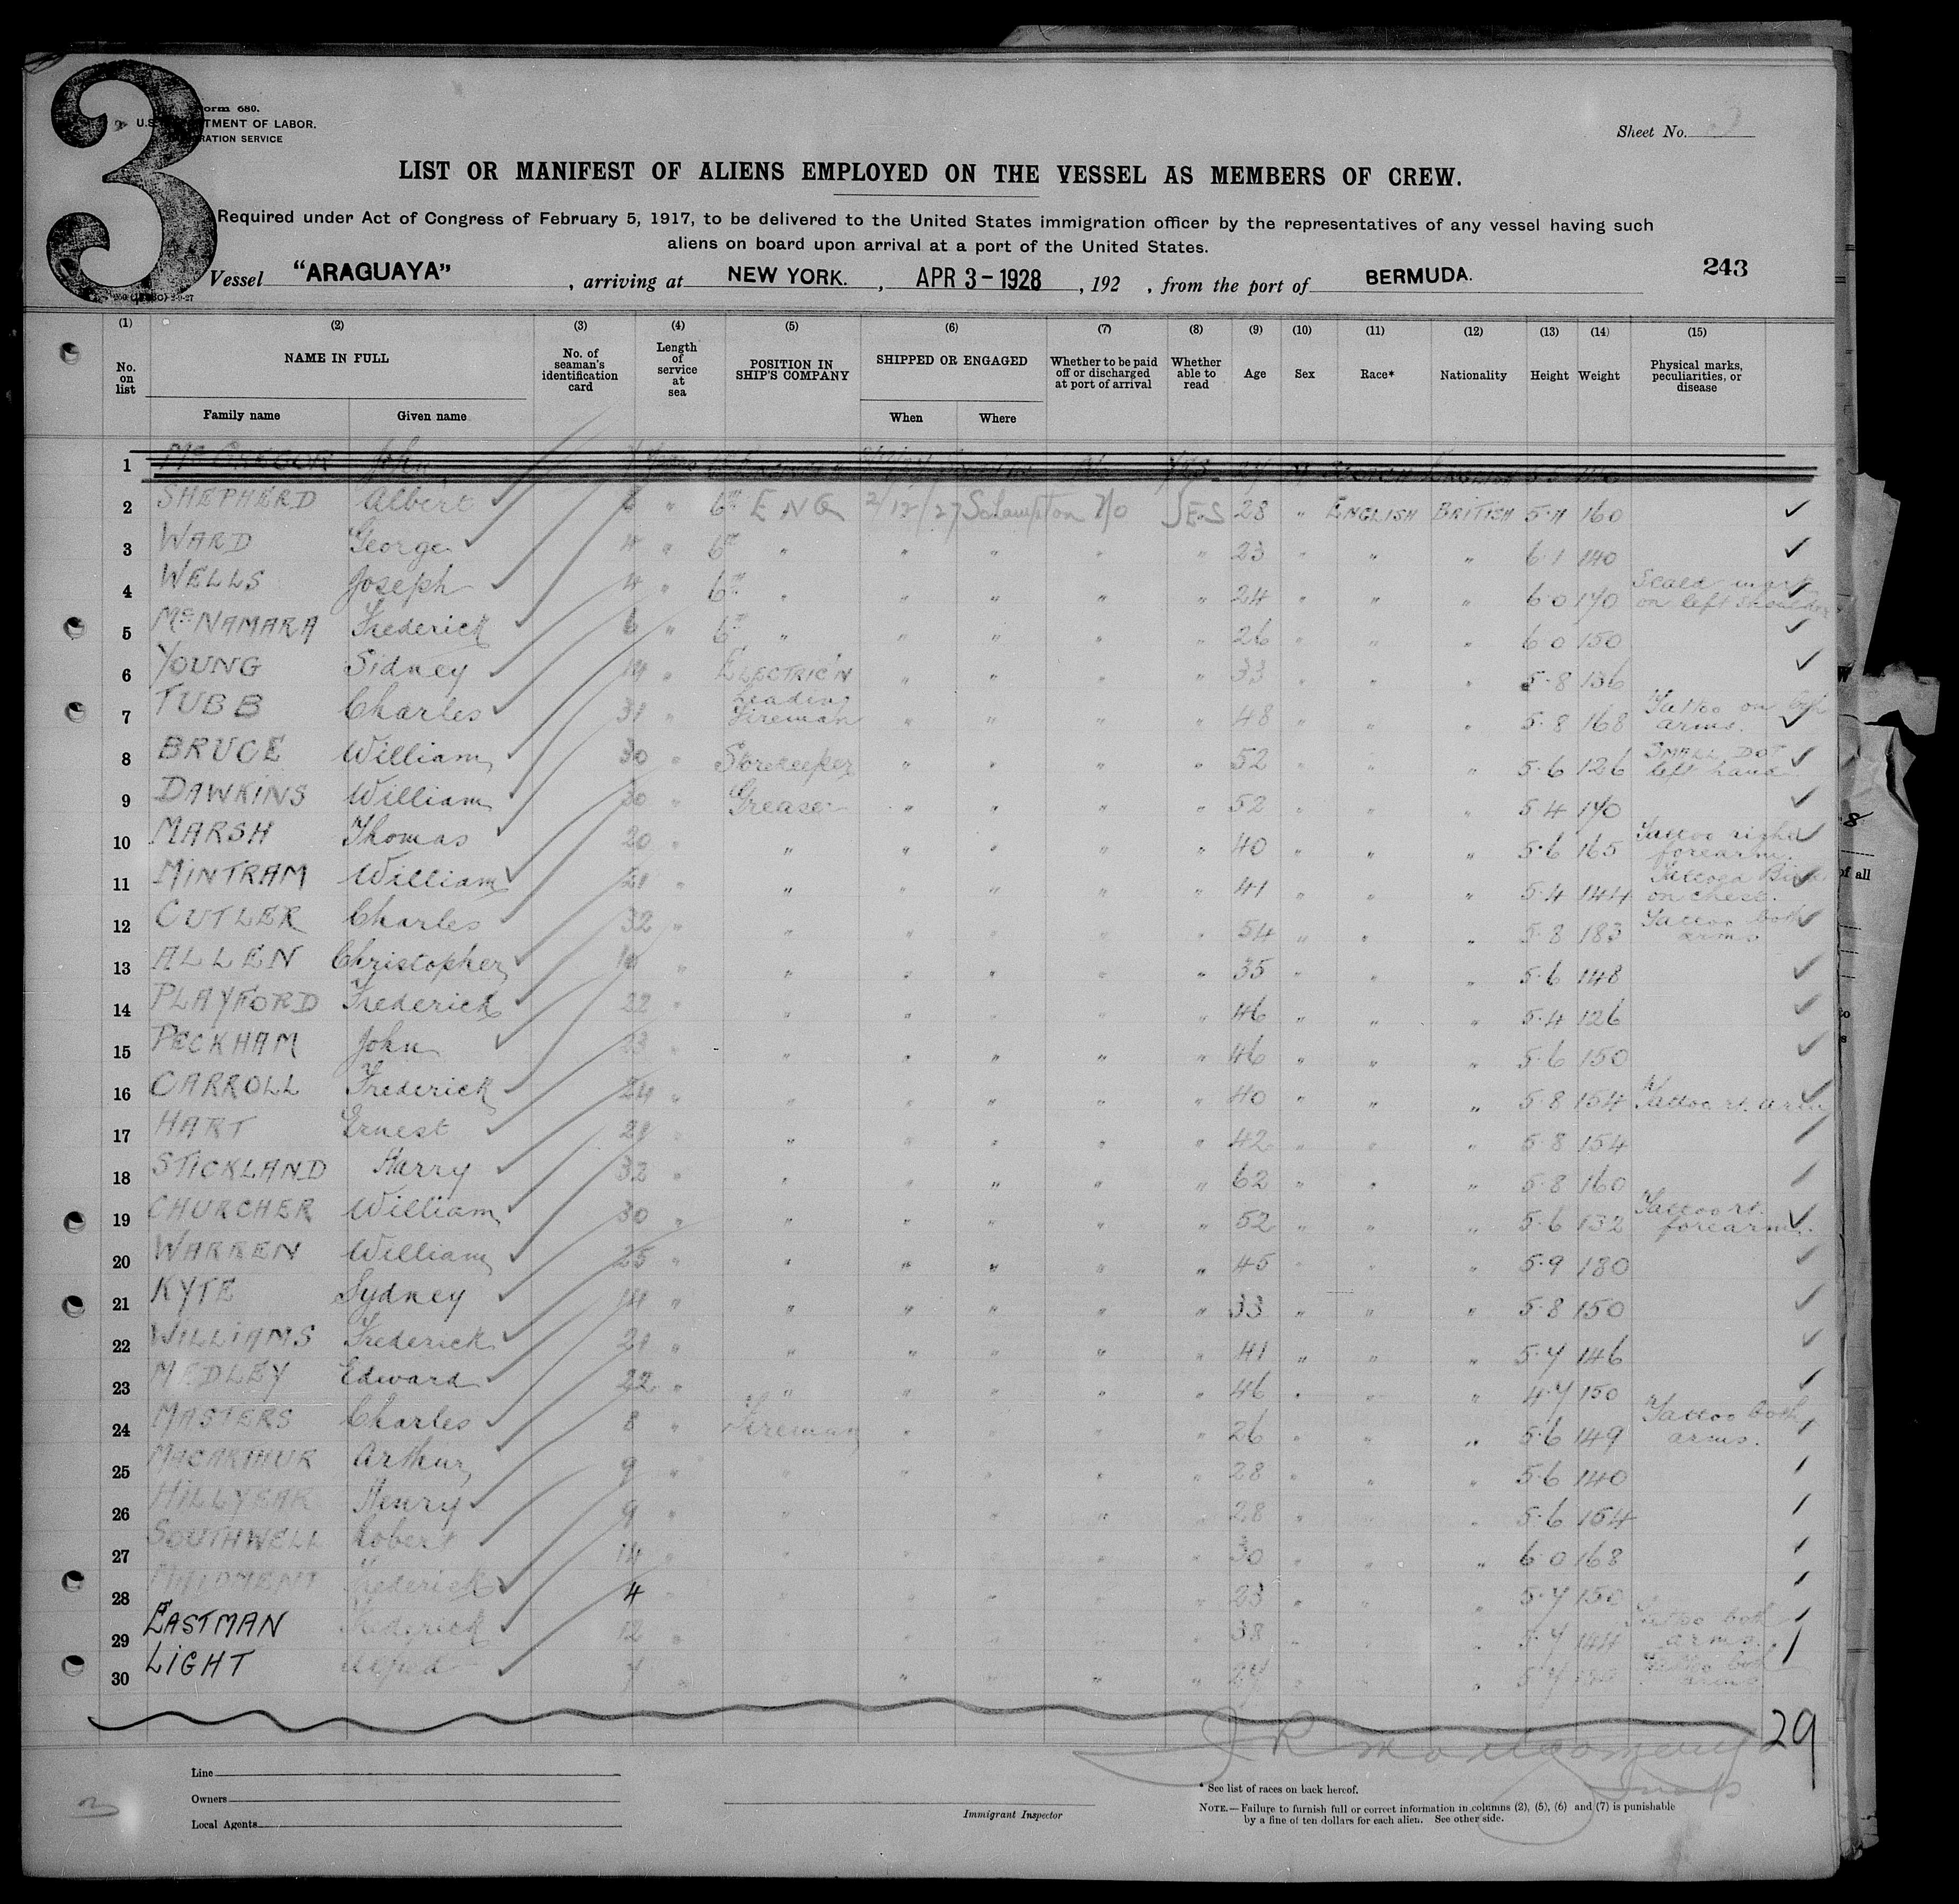 3
Form 680.
U.S. DEPARTMENT OF LABOR.
IMMIGRATION SERVICE
Sheet No.
LIST OR MANIFEST OF ALIENS EMPLOYED ON THE VESSEL AS MEMBERS OF CREW.
Required under Act of Congress of February 5, 1917, to be delivered to the United States immigration officer by the representatives of any vessel having such
aliens on board upon arrival at a port of the United States.
Vessel "ARAGUAYA", arriving at NEW YORK., APR 3 - 1928, 192 , from the port of BERMUDA.
243
(1) (2) (3) (4) (5) (6) (7) (8) (9) (10) (11) (12) (13) (14) (15)
No. on list NAME IN FULL Family name Given name No. of seaman's identification card Length of service at sea POSITION IN SHIP'S COMPANY SHIPPED OR ENGAGED When Where Whether to be paid off or discharged at port of arrival Whether able to read Age Sex Race* Nationality Height Weight Physical marks, peculiarities, or disease
1 McGREGOR John
2 SHEPHERD Albert 6 " 6th ENG 2/12/27 Sohampton No YES 28 " ENGLISH BRITISH 5·11 160 ✓
3 WARD George 4 " 6th " " " " " 23 " " " 6 1 140 ✓
4 WELLS Joseph 4 " 6th " " " " " 24 " " " 6 0 170 Scald mark on left shoulder ✓
5 McNAMARA Frederick 6 " 6th " " " " " 26 " " " 6 0 150 ✓
6 YOUNG Sidney 14 " ELECTRIC'N " " " " 33 " " " 5·8 136 ✓
7 TUBB Charles 31 " Leading Fireman " " " " 48 " " " 5·8 168 Tattoo on both arms. ✓
8 BRUCE William 30 " Storekeeper " " " " 52 " " " 5·6 126 SMALL DOT left hand ✓
9 DAWKINS William 30 " Greaser " " " " 52 " " " 5 4 170 ✓
10 MARSH Thomas 20 " " " " " " 40 " " " 5·6 165 Tattoo right forearm. ✓
11 MINTRAM William 21 " " " " " " 41 " " " 5·4 144 on chest. ✓
12 CUTLER Charles 32 " " " " " " 54 " " " 5·8 183 Tattoo both arms ✓
13 ALLEN Christopher " " " " " " 35 " " " 5·6 148 ✓
14 PLAYFORD Frederick 22 " " " " " " 46 " " " 5·4 126 ✓
15 PECKHAM John 23 " " " " " " 46 " " " 5·6 150 ✓
16 CARROLL Frederick 24 " " " " " " 40 " " " 5·8 154 Tattoo rt. arm ✓
17 HART Ernest 21 " " " " " " 42 " " " 5·8 154
18 STICKLAND Harry 32 " " " " " " 62 " " " 5·8 160
19 CHURCHER William 30 " " " " " " 52 " " " 5·6 132 Tattoo rt. forearm. ✓
20 WARREN William 25 " " " " " " 45 " " " 5·9 180 ✓
21 KYTE Sydney 14 " " " " " " 33 " " " 5·8 150 ✓
22 WILLIAMS Frederick 21 " " " " " " 41 " " " 5·7 146 ✓
23 MEDLEY Edward 22 " " " " " " 46 " " " 4·7 150 ✓
24 MASTERS Charles 8 " Fireman " " " " 26 " " " 5·6 149 Tattoo both arms.
25 MACARTHUR Arthur 9 " " " " " " 28 " " " 5·6 140
26 HILLYEAR Henry 9 " " " " " " 28 " " " 5·6 154
27 SOUTHWELL Robert 14 " " " " " " 30 " " " 6 0 168
28 MAIDMENT Frederick 4 " " " " " " 23 " " " 5·7 150
29 EASTMAN Frederick 12 " " " " " " 38 " " " 5·7 144 Tattoo both arms.
30 LIGHT Alfred 7 " " " " " " 27 " " " 5·7 Tattoo both arms
29
J R Montgomery
Insp
Line
Owners
Local Agents
Immigrant Inspector
* See list of races on back hereof.
NOTE.—Failure to furnish full or correct information in columns (2), (5), (6) and (7) is punishable
by a fine of ten dollars for each alien. See other side.
3